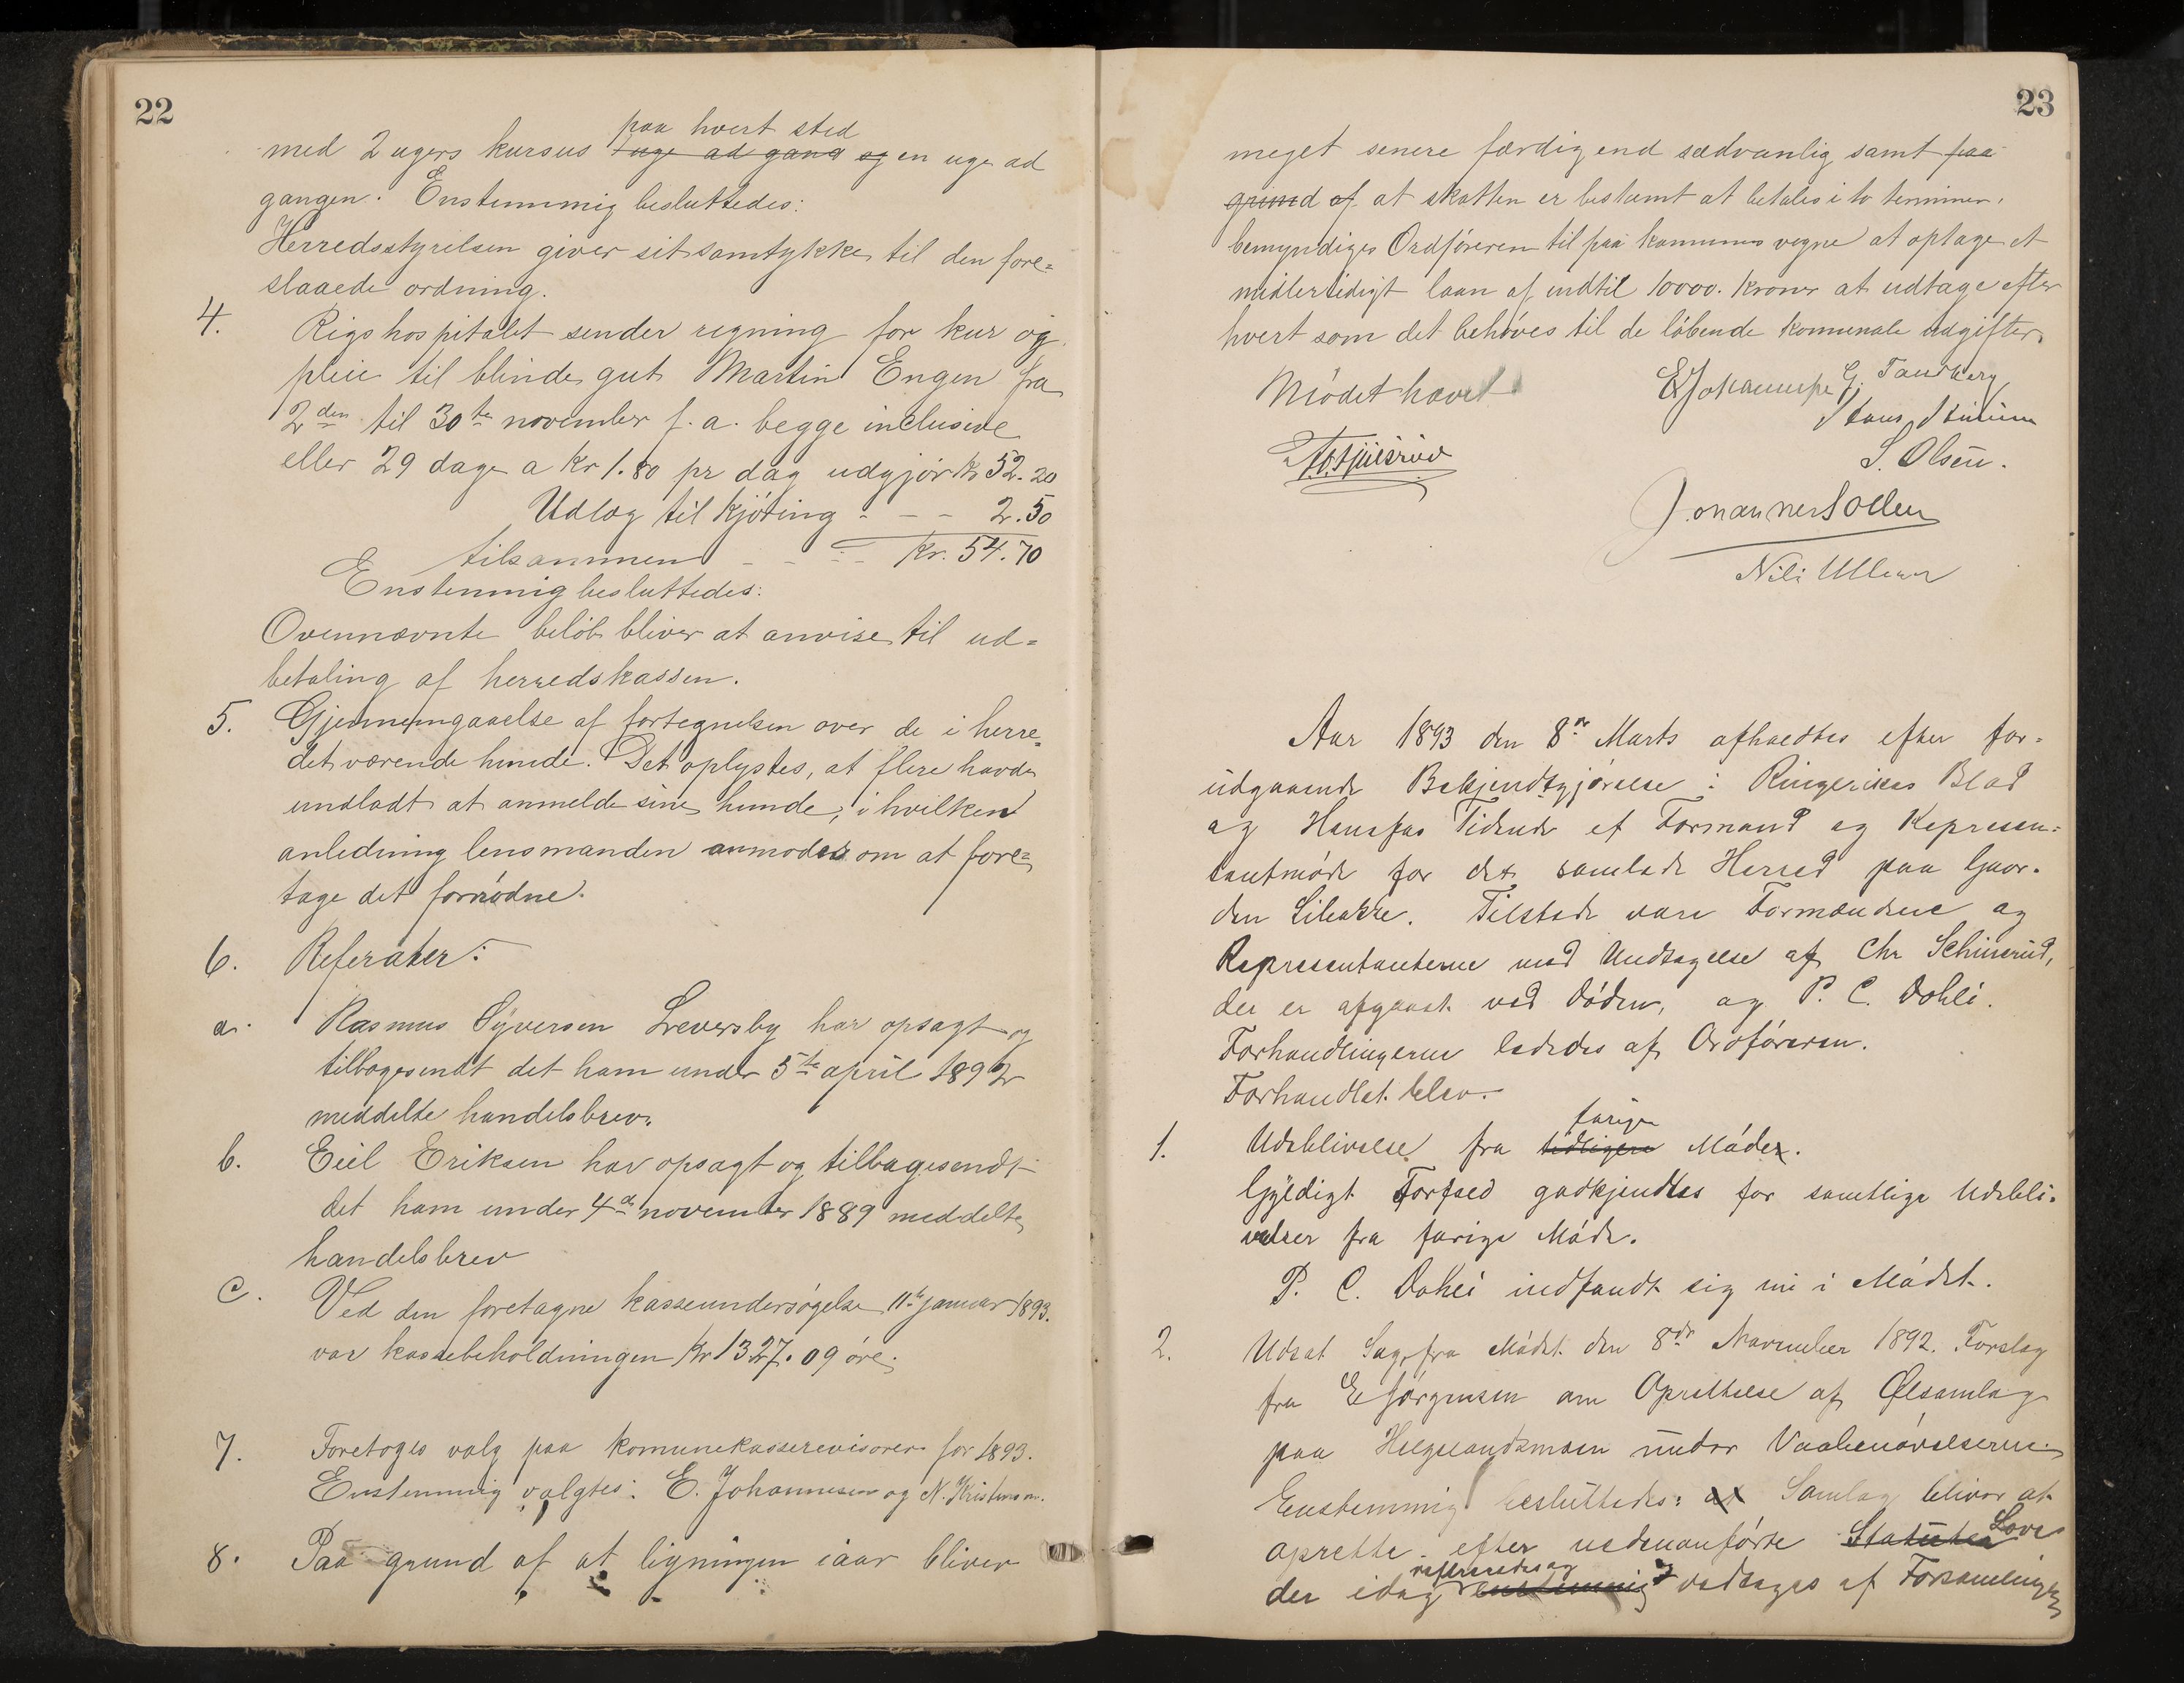 22
paa hvert sted
med 2 ugers kursus uge ad gang og en uge ad
gangen. Enstemmig besluttedes:
Herredsstyrelsen giver sit samtykke til den fore=
slaaede ordning.
4. Rigshospitalet sender regning for kur og
pleie til blinde gut Martin Engen fra
2den til 30te november f. a. begge inclusive
eller 29 dage a Kr 1.80 pr dag udgjør Kr 52.20
Udlæg til kjøring - - - 2.50
tilsammen - - - Kr. 54.70
Enstemmig besluttedes:
Ovennævnte beløb bliver at anvise til ud=
betaling af herredskassen.
5. Gjennemgaaelse af fortegnelsen over de i herre=
det værende hunde. Det oplystes, at flere havde
undladt at anmelde sine hunde, i hvilken
anledning lensmanden anmodes om at fore=
tage det fornødne.
6. Referater:
a. Rasmus Syversen Sreversby har opsagt og
tilbagesendt det ham under 5te april 1892
meddelte handelsbrev.
b. Eiel Eriksen har opsagt og tilbagesendt
det ham under 4de november 1889 meddelte
handelsbrev
c. Ved den foretagne kasseundersøgelse 11te januar 1893.
var kassebeholdningen Kr 1327.09 øre.
7. Foretoges valg paa komunekasserevisorer for 1893.
Enstemmig valgtes: E. Johannesen og N. Kristensen.
8. Paa grund af at ligningen iaar bliver
23
meget senere færdig end sædvanlig samt paa
grund af at skatten er bestemt at betales i to terminer,
bemyndiges Ordføreren til paa kommunens vegne at optage et
midlertidigt laan af indtil 10000. Kroner at udtage efter
hvert som det behøves til de løbende komunale udgifter.
Mødet hævet
E Johannesen G. Tandberg
Hans
S. Olsen.
Johannes Sollen
Nils Ulleren
Aar 1893 den 8de Marts afholdtes efter for=
udgaaende Bekjendtgjørelse i Ringerikes Blad
og Hønefos Tidende et Formand og Represen=
tantmøde for det samlede Herred paa Gaar=
den Libakke. Tilstede vare Formændene og
Representanterne med Undtagelse af Chr Schinrud,
der er afgaaet ved Døden, og P. C. Dohli.
Forhandlingerne lededes af Ordføreren.
Forhandlet blev.
forige
1. Udeblivelse fra tidligere Møder.
Gyldigt Forfald godkjendtes for samtlige Udebli=
velser fra forige Møde.
P. C. Dohli indfandt sig nu i Mødet.
2. Udsat Sag fra Mødet den 8de November 1892. Forslag
fra E Jørgensen om Oprettelse af Ølsamlag
paa Helgelandsmoen under Vaabenøvelserne.
Enstemmig besluttedes: at Samlag bliver at
oprette efter nedenanførte Statuter Love
refereredes og
der idag enstemmig vedtages af Forsamlingen